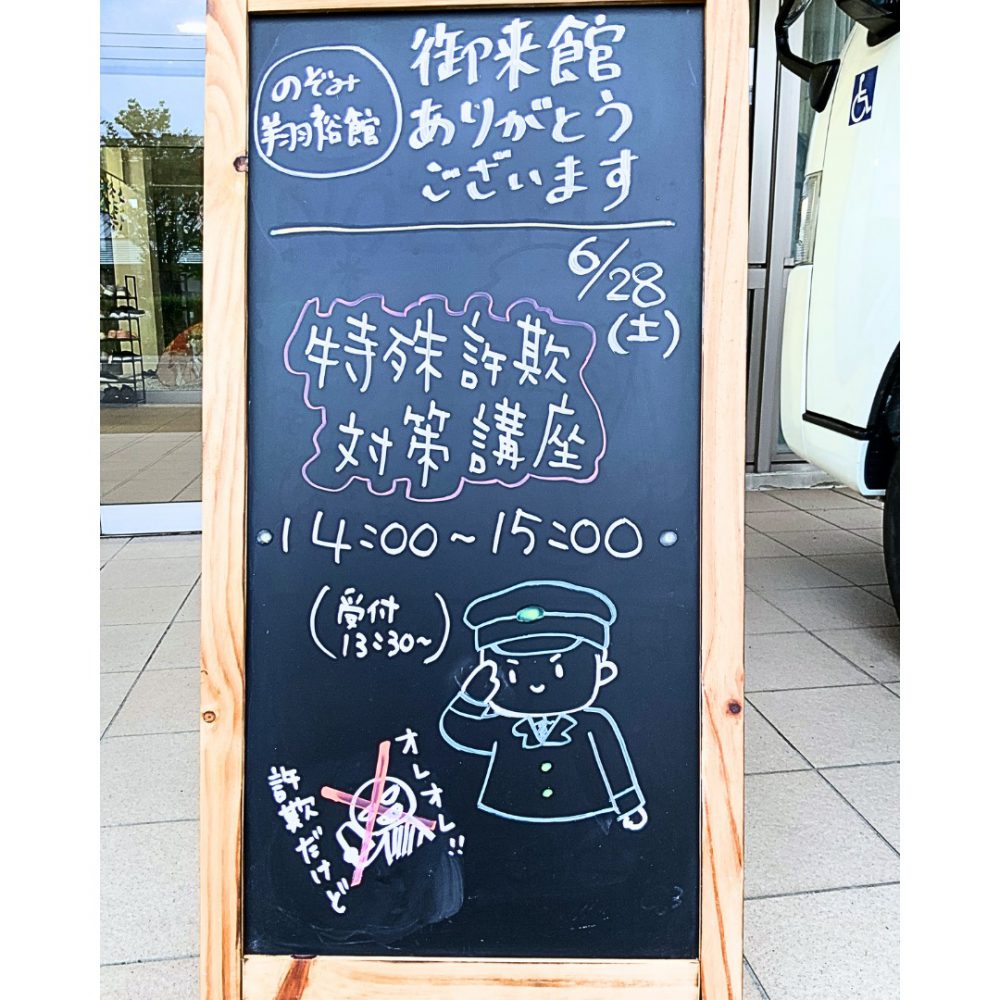 のぞみ
翔裕館
御来館
ありがとう
ございます
6/28
(土)
特殊詐欺
対策講座
14:00~15:00
(受付
13:30~)
オレオレ!!
詐欺だけど